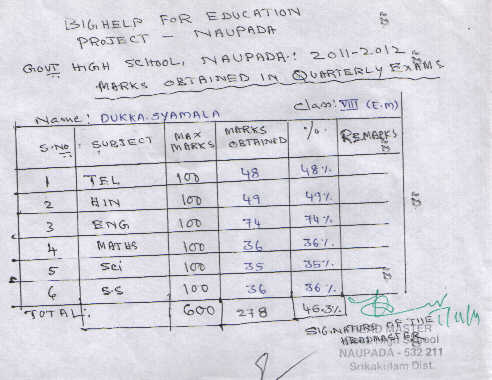 BIGHELP FOR EDUCATION
PROJECT - NAUPADA
GOVT HIGH SCHOOL, NAUPADA: 2011-2012
MARKS OBTAINED IN QUARTERLY EXAMS
Name: DUKKA.SYAMALA Class: VIII (E.m)
S.NO SUBJECT MAX MARKS MARKS OBTAINED %. REMARKS
1 TEL 100 48 48%
2 HIN 100 49 49%
3 ENG 100 74 74%
4 MATHS 100 36 36%
5 Sci 100 35 35%
6 S.S 100 36 36%
TOTAL: 600 278 46.3%
SIGNATURE OF THE
HEADMASTER
NAUPADA - 532 211
Srikakulam Dist.